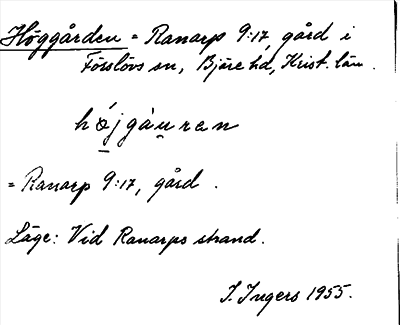 Höggården = Ranarp 9:17, gård i
Förslövs sn, Bjäre hd, Krist. län.
hǿjgáu̠ren
= Ranarp 9:17, gård.
Läge: Vid Ranarps strand.
I. Ingers 1955.